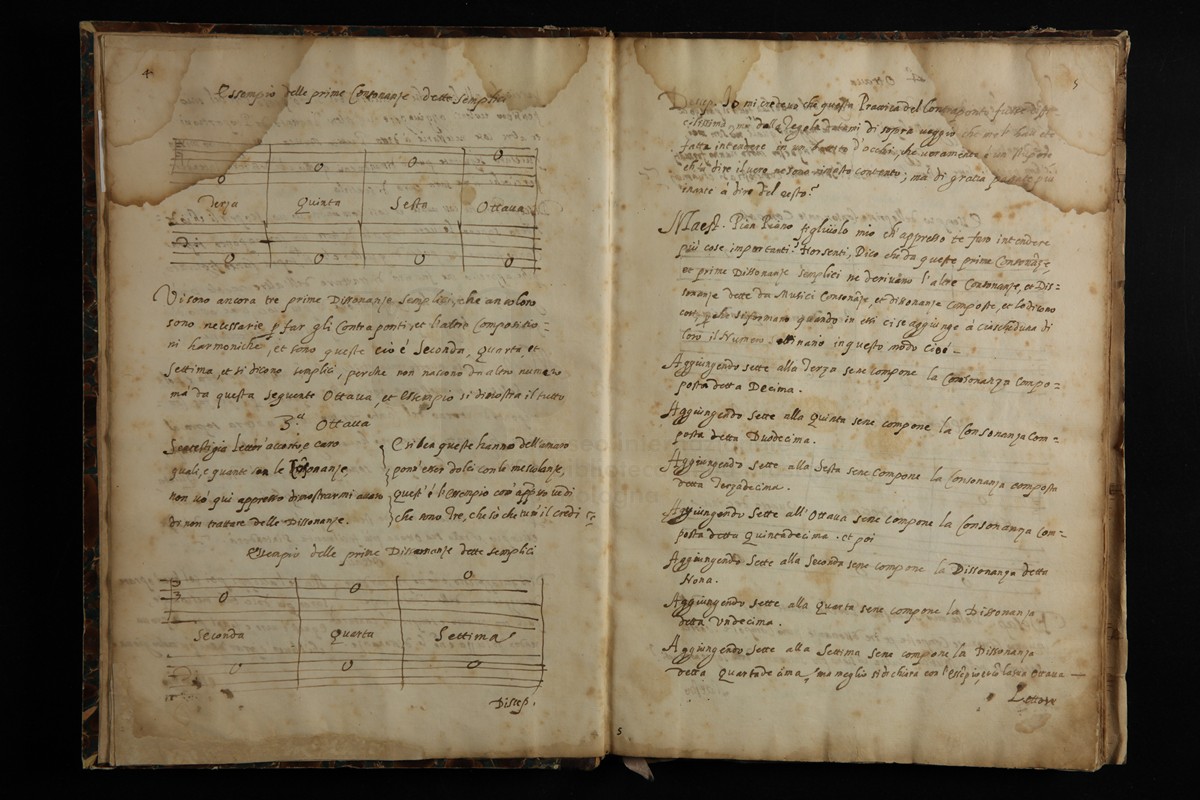 4
Essempio delle prime Consonanze dette semplici
Terza Quinta Sesta Ottava
Vi sono ancora tre prime Dissonanze semplici, che ancoloro
sono necessarie p far gli Contraponti, et l'altre Compositio=
ni harmoniche, et sono queste cio è Seconda, Quarta, et
Settima, et si dicono semplici, perche non nascono da altro numero
mà da questa seguente Ottava, et l'essempio si dimostra il tutto
3.a Ottava
letter accorto, e caro
quali, e quante son le
non vò qui appresso dimostrarmi avaro
di non trattare delle Dissonanze.
E si bea queste hanno dell'amaro
pono esser dolci con le mescolanze,
quest' è l'essempio com' appresso vedi
che sono Tre, che sò che tu il credi
Essempio delle prime Dissonanze dette semplici
Seconda Quarta Settima
Discep.
5
Discep. Io mi credevo che questa Prattica del Contraponto fusse
cilissima, mà dalla regola datami di sopra veggio che
fatta intendere in un battito d'occhi, che veramente è un
ch' à dire il vero ne sono rimasto contento; mà di gratia più
inante à dire del resto?
Maest. Pian Piano figliuolo mio ch' appresso te farò intendere
più cose importanti. Hor senti, Dico che da queste prime Consonāze,
et prime Dissonanze semplici ne derivano l'altre Consonanze, et Dis=
sonanze dette da Musici Consonāze, et dissonanze composte, et lo dicono
così p che si formano quando in essi ci se aggiunge à ciascheduna di
loro il Numero settinano in questo modo cioè -
Aggiungendo sette alla Terza sene compone la Consonanza Compo=
posta detta Decima.
Aggiungendo sette alla Quinta sene compone la Consonanza Com=
posta detta Duodecima.
Aggiungendo sette alla Sesta sene Compone la Consonanza composta
detta Terzadecima.
Aggiungendo sette all'Ottava sene compone la Consonanza Com=
posta detta Quintadecima. et poi
Aggiungendo Sette alla Seconda sene compone la Dissonanza detta
Nona.
Aggiungendo sette alla Quarta sene compone la Dissonanza
detta Undecima.
Aggiungendo sette alla Settima sene compone la Dissonanza
detta Quartadecima, mà meglio si dichiara con l'essēpio, et la Ottava
5